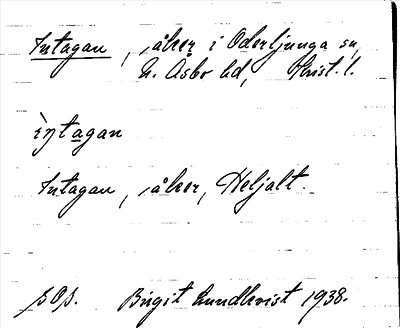 Intagan, åker i Oderljunga sn,
N. Åsbo hd, Krist. l.
ìntagan
Intagan, åker, Heljalt.
sOs. Birgit Lundkvist 1938.